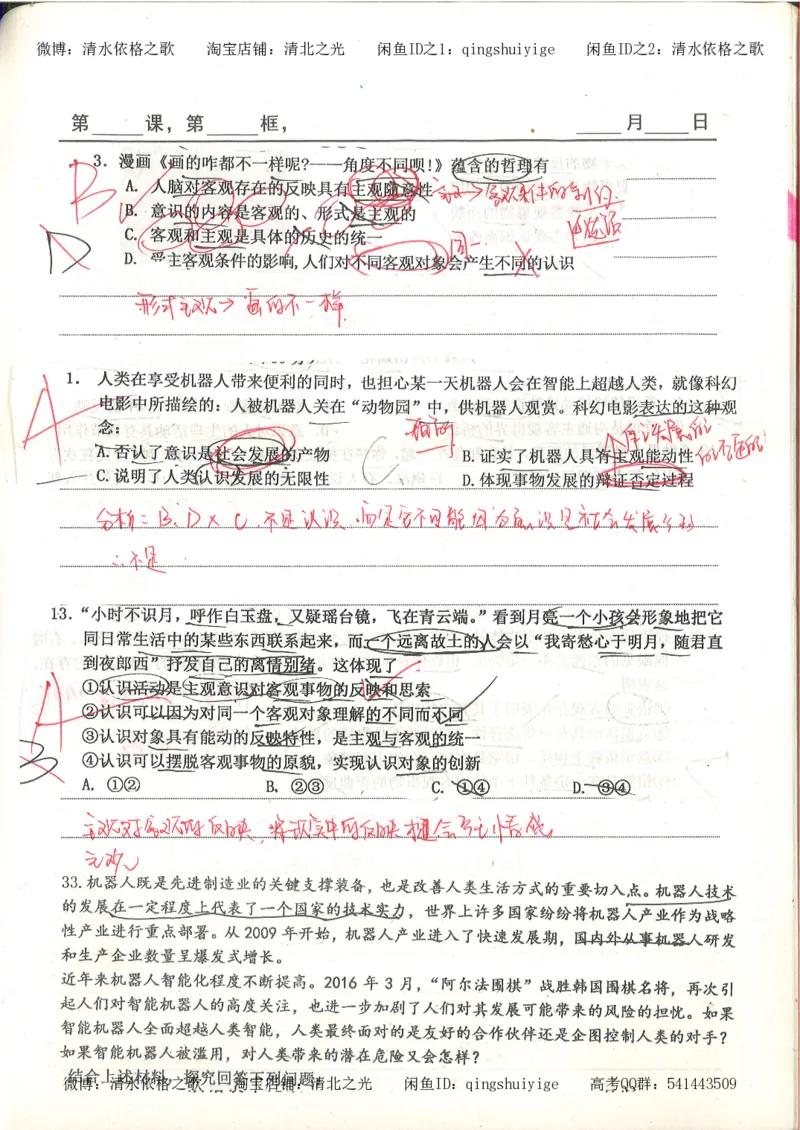 微博：清水依格之歌 淘宝店铺：清北之光 闲鱼ID之1：qingshuiyige 闲鱼ID之2：清水依格之歌
第 课，第 框， 月 日
3. 漫画《画的咋都不一样呢?——角度不同呗!》蕴含的哲理有
B
A. 人脑对客观存在的反映具有主观随意性
B. 意识的内容是客观的、形式是主观的
C. 客观和主观是具体的历史的统一
D
D. 受主客观条件的影响,人们对不同客观对象会产生不同的认识
同一
形式主观→画的不一样
1. 人类在享受机器人带来便利的同时，也担心某一天机器人会在智能上超越人类，就像科幻
电影中所描绘的：人被机器人关在“动物园”中，供机器人观赏。科幻电影表达的这种观
A
念：
A. 否认了意识是社会发展的产物 B. 证实了机器人具有主观能动性
C
C. 说明了人类认识发展的无限性 D. 体现事物发展的辩证否定过程
分析：B、D× C 不是认识
∴不是
13. “小时不识月，呼作白玉盘，又疑瑶台镜，飞在青云端。”看到月亮一个小孩会形象地把它
同日常生活中的某些东西联系起来，而一个远离故土的人会以“我寄愁心于明月，随君直
到夜郎西”抒发自己的离情别绪。这体现了
①认识活动是主观意识对客观事物的反映和思索
A
②认识可以因为对同一个客观对象理解的不同而不同
③认识对象具有能动的反映特性，是主观与客观的统一
B
④认识可以摆脱客观事物的原貌，实现认识对象的创新
A. ①② B. ②③ C. ①④ D. ③④
主观对客观的反映，
33. 机器人既是先进制造业的关键支撑装备，也是改善人类生活方式的重要切入点。机器人技术
的发展在一定程度上代表了一个国家的技术实力，世界上许多国家纷纷将机器人产业作为战略
性产业进行重点部署。从 2009 年开始，机器人产业进入了快速发展期，国内外从事机器人研发
和生产企业数量呈爆发式增长。
近年来机器人智能化程度不断提高。2016 年 3 月，“阿尔法围棋”战胜韩国围棋名将，再次引
起人们对智能机器人的高度关注，也进一步加剧了人们对其发展可能带来的风险的担忧。如果
智能机器人全面超越人类智能，人类最终面对的是友好的合作伙伴还是企图控制人类的对手？
如果智能机器人被滥用，对人类带来的潜在危险又会怎样？
结合上述材料，探究回答下列问题：
微博：清水依格之歌 淘宝店铺：清北之光 闲鱼ID：qingshuiyige 高考QQ群：541443509